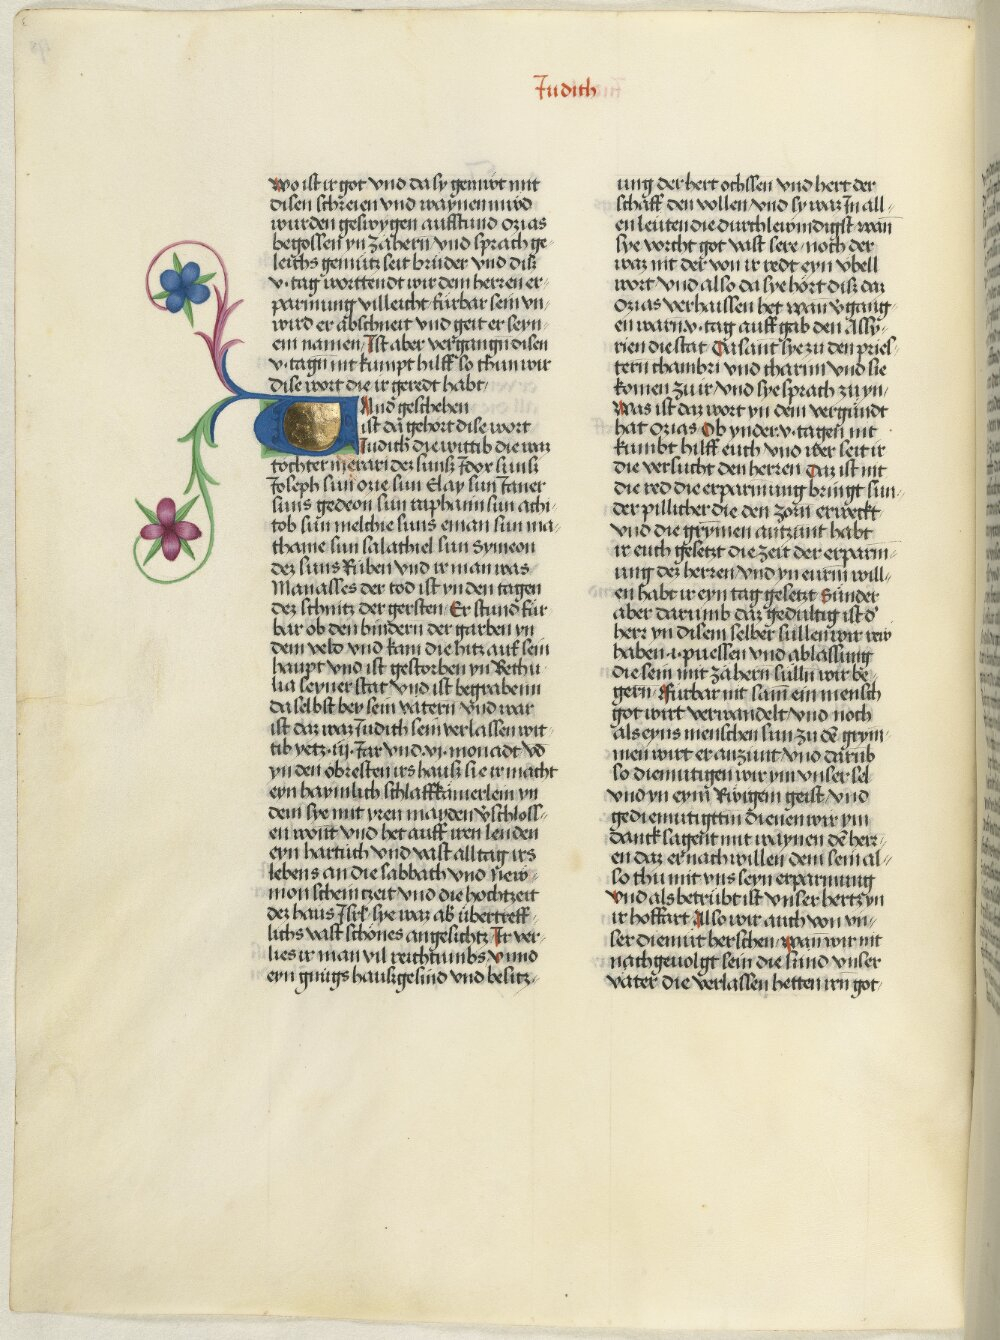 Judith
wo ist ir got vnd da sy gemüt mit
disen schreien vnd waynen müd
wurden geswygen auffstund ozias
begossen yn zähern vnd sprach ge-
leichs gemütz seit brüder vnd disz
v· tag worttendt wir dem herren er-
parmung villeicht fürbar sein vn-
wird er abschneit vnd geit er seyn-
em namen Ist aber vergangn disen
v· tagn nit kumpt hilff so thun wir
dise wort die ir geredt habt
Und geschehen
ist da gehort dise wort
Judith dye wittib die waz
tochter merari dez sunsz Idox sunsz
Joseph sun ozie sun Elay sun Janer
suns gedeon sun raphaim sun achi-
tob sun melchie suns eman sun ma-
thanie sun salathiel sun Symeon
dez suns Ruben vnd ir man was
Manasses der tod ist yn den tagen
dez schnitz der gersten Er stund für
bar ob den bindern der garben yn
dem veld vnd kam die hitz auf sein
haupt vnd ist gestorben yn Bethu-
lia seyner stat vnd ist begraben in
da selbst bey sein vätern vnd war
ist daz waz Judith sein verlassen wit-
tib yetz· iij· Jar vnd· vj· monadt vd
yn den obresten irs hausz sie ir macht
eyn haymlich schlaffkämerlein yn
dem sye mit yren mayden v̈schloss-
en wont vnd het auff iren lenden
eyn härtuch vnd vast all tag irs
lebens an die sabbath vnd New-
monschein tzeit vnd die hochtzeit
dez haus Isrl sye waz ab übertreff-
lichs vast schönes angesichtz Ir ver-
lies ir man vil reichtumbs vnnd
eyn gnügs hauszgesind vnd besitz-
ung der hert ochssen vnd hert der
schäff den vollen vnd sy waz In all-
en leuten die durchleümdigst wan
sye vorcht got vast sere noch der
waz nit der von ir redt eyn vbell
wort vnd also da sye hört disz daz
ozias verhaissen het wan v̈gang-
en warn· v· tag auff gab den Assy-
rien die stat Da sant sye zu den pries-
tern chambri vnd charim vnd sie
komen zu ir vnd sye sprach zu yn
Was ist daz wort yn dem vergündt
hat ozias Ob ynder· v· tagen nit
kumbt hilff euch vnd wer seit ir
die versucht den herren Daz ist nit
die red die erparmung bringt sun-
der pillicher die den zorn erweckt
vnd die grymen antzünt habt
ir euch gesetzt die zeit der erparm-
ung dez herren vnd yn eurm will-
en habt ir eyn tag gesetzt Sünder
aber darumb daz gedultig ist d'
herr yn disem selber süllen wir rew
haben· i· puessen vnd ablassung
die sein mit zähern sülln wir be-
gern· Fürbar nit sam ein mensch
got wirt verwandelt vnd noch
als eyns menschen sun zu de grym-
men wirt er anzünt vnd darüb
so diemütigen wir ym vnser sel
vnd yn eym̄ Rwigem geist vnd
gediemutigttm dienen wir ym
danck sagent mit waynen de herr-
en daz er nach willen dem sein al-
so thu mit vns seyn erparmung
vnd als betrübt ist vnser hertz yn
ir hoffart Also wir auch von vn-
ser diemut herschen wan wir nit
nachgeuolgt sein die sünd vnser
väter die verlassen hetten irn got